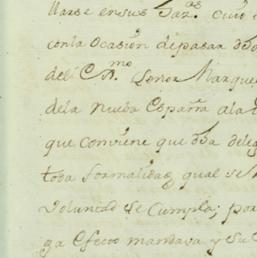 llarse en sus Jaz.es cuio
con la ocasion de pasar dho
del Ex.mo Señor Marque
de la Nueba España a la
que conviene que dha deleg
toda formalidad qual se
voluntad se cumpla; por
ga efecto mandava y su